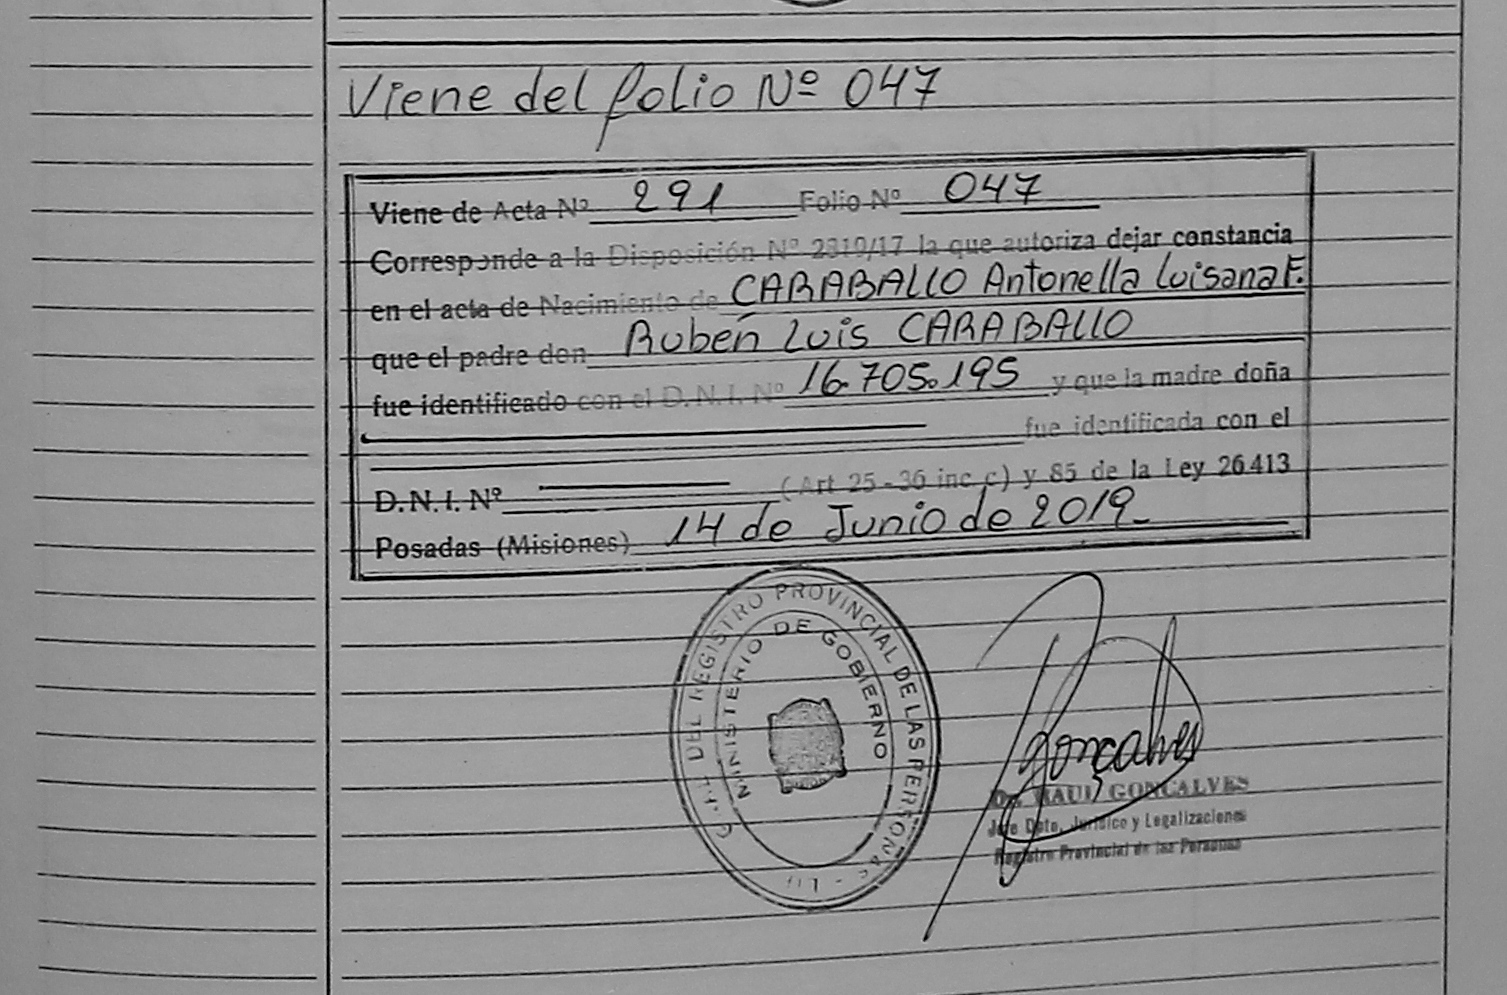 Viene del folio Nº 047
Viene de Acta Nº 291 Folio Nº 047
Corresponde a la Disposición Nº 2319/17 la que autoriza dejar constancia
en el acta de Nacimiento de CARABALLO Antonella Luisana F.
que el padre don Ruben Luis CARABALLO
fue identificado con el D.N.I. Nº 16.705.195 y que la madre doña
fue identificada con el
D.N.I. Nº (Art 25 - 36 inc c) y 85 de la Ley 26413
Posadas (Misiones) 14 de Junio de 2019
DEL REGISTRO PROVINCIAL DE LAS PERSONAS
MINISTERIO DE GOBIERNO
Goncalves
Dr. RAUL GONCALVES
Jefe Dpto. Jurídico y Legalizaciones
Registro Provincial de las Personas